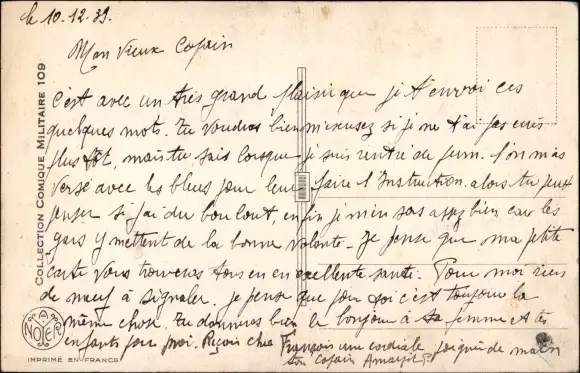 le 10.12.39.
Mon Vieux Copain
C'est avec un très grand plaisir que je t'envoi ces
quelques mots. Tu voudras bien m'excusez si je ne t'ai pas
plus tôt, mais tu sais lorsque je suis rentré de perm. l'on m'as
versé avec les bleus pour leur faire l'Instruction. alors tu peux
penser si j'ai du boulout, enfin je m'en sas assez bien car les
gars y mettent de la bonne volonte. Je pense que ma petite
carte vous trouveras tous en excellente santé. Pour moi rien
de neuf à signaler. je pense que pour toi c'est toujours la
même chose. Tu donneras bien le bonjour à ta femme et tes
enfants pour moi. Reçois cher François une cordiale poignée de main
ton Copain
COLLECTION COMIQUE MILITAIRE 109
IMPRIMÉ EN FRANCE